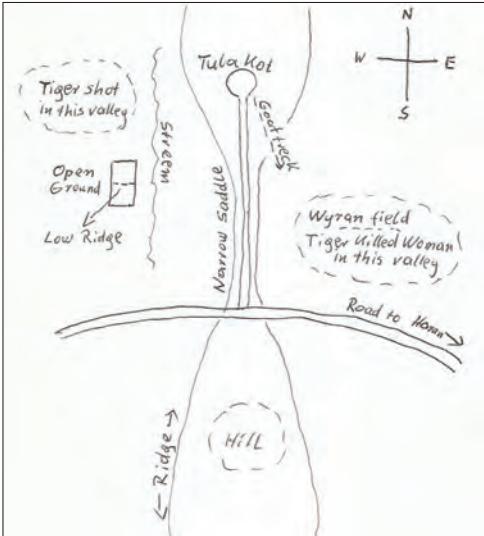 N
W E
S
Tula Kot
Tiger shot
in this valley
Stream
Goat tresk
Open
Ground
Low Ridge
Narrow Saddle
Wyran field
Tiger Killed Woman
in this valley
Road to
Ridge
Hill